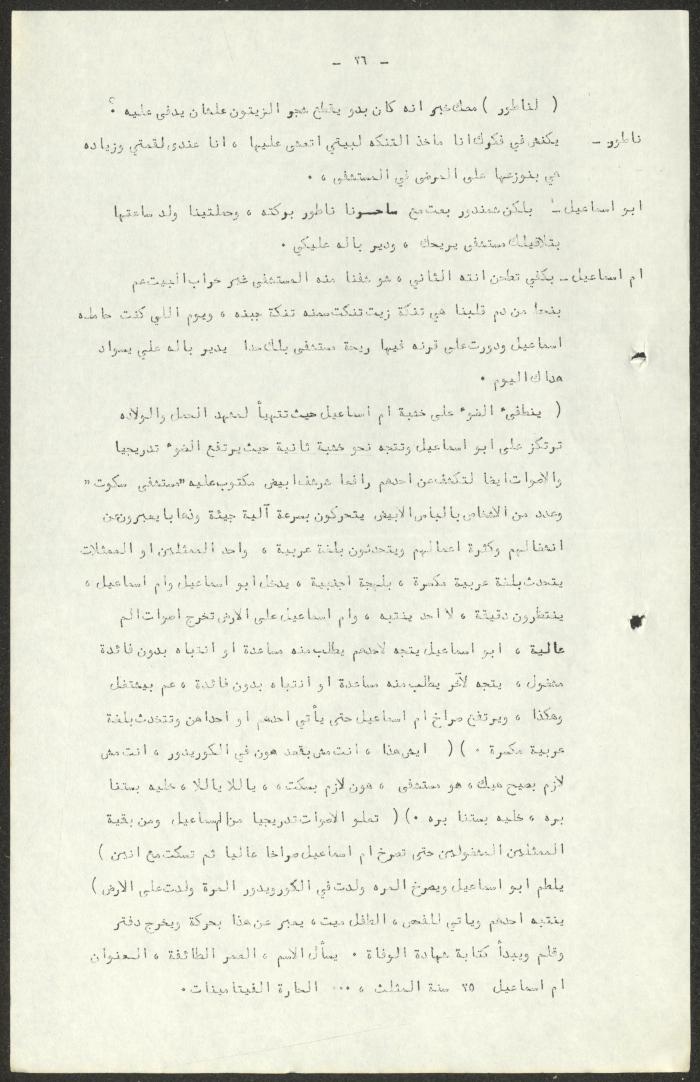 - ٢٦ -
( لناطور ) معك خبر انه كان بدو يقطع شجر الزيتون علشان يدفى عليه ؟
ناطور - يكنش في فكرك انا ماخذ التنكه لبيتي اتعشى عليها ، انا عندي لقمتي وزياده
هي بنوزعها على المرضى في المستشفى ، .
ابو اسماعيل - بلكن شمندور بعت مع ساحرنا ناطور بركته ، وحملتينا ولد ساعتها
بتلاقيلك مستشفى يريحك ، ودير باله عليكي .
ام اسماعيل - بكفي تطحن انته الثاني ، شو شفنا منه المستشفى غير خراب البيت عم
بنعطـ من دم قلبنا هي تنكة زيت تنكت سمنه تنكة جبنه ، ويوم اللي كنت حامله
اسماعيل ودورت على قرنه فيها ريحة مستشفى بلك حدا يدير باله علي يسواد
هداك اليوم .
( ينطفيء الضوء على خشبة ام اسماعيل حيث تتهيأ لمشهد الحمل والولاده
ترتكز على ابو اسماعيل وتتجه نحو خشبة ثانية حيث يرتفع الضوء تدريجيا
والاصوات ايضا لتكشف عن احدهم رافعا شرشف ابيض مكتوب عليه "مستشفى سكوت"
وعدد من الاشخاص بالباس الابيض يتحركون بسرعة آلية جيئة وذهابا يعبرون عن
انشغالهم وكثرة اعمالهم ويتحدثون بلغة عربية ، واحد الممثلين او الممثلات
يتحدث بلغة عربية مكسرة ، بلهجة اجنبية ، يدخل ابو اسماعيل وام اسماعيل ،
ينتظرون دقيقة ، لا احد ينتبه ، وام اسماعيل على الارض تخرج اصوات الم
عالية ، ابو اسماعيل يتجه لاحدهم يطلب منه مساعدة او انتباه بدون فائدة
مشغول ، يتجه لآخر يطلب منه مساعدة او انتباه بدون فائدة ، عم بيشتغل
وهكذا ، ويرتفع صراخ ام اسماعيل حتى يأتي احدهم او احداهن وتتحدث بلغة
عربية مكسرة . ) ( ايش هذا ، انت مش بقعد هون في الكوريدور ، انت مش
لازم بصيح هيك ، هو مستشفى ، هون لازم بسكت ، ، ياللا ياللا ، خليه بستنا
بره ، خليه بستنا بره . ) ( تعلو الاصوات تدريجيا من اسماعيل ومن بقية
الممثلين المشغولين حتى تصرخ ام اسماعيل صراخا عاليا ثم تسكت مع انين )
يلطم ابو اسماعيل ويصرخ المره ولدت في الكورويدور المرة ولدت على الارض )
ينتبه احدهم وياتي للفحص ، الطفل ميت ، يعبر عن هذا بحركة ويخرج دفتر
وقلم ويبدأ كتابة شهادة الوفاة . يسأل الاسم ، العمر الطائفة ، العنوان
ام اسماعيل ٢٥ سنة المثلث ، ... الحارة الفيتامينات .